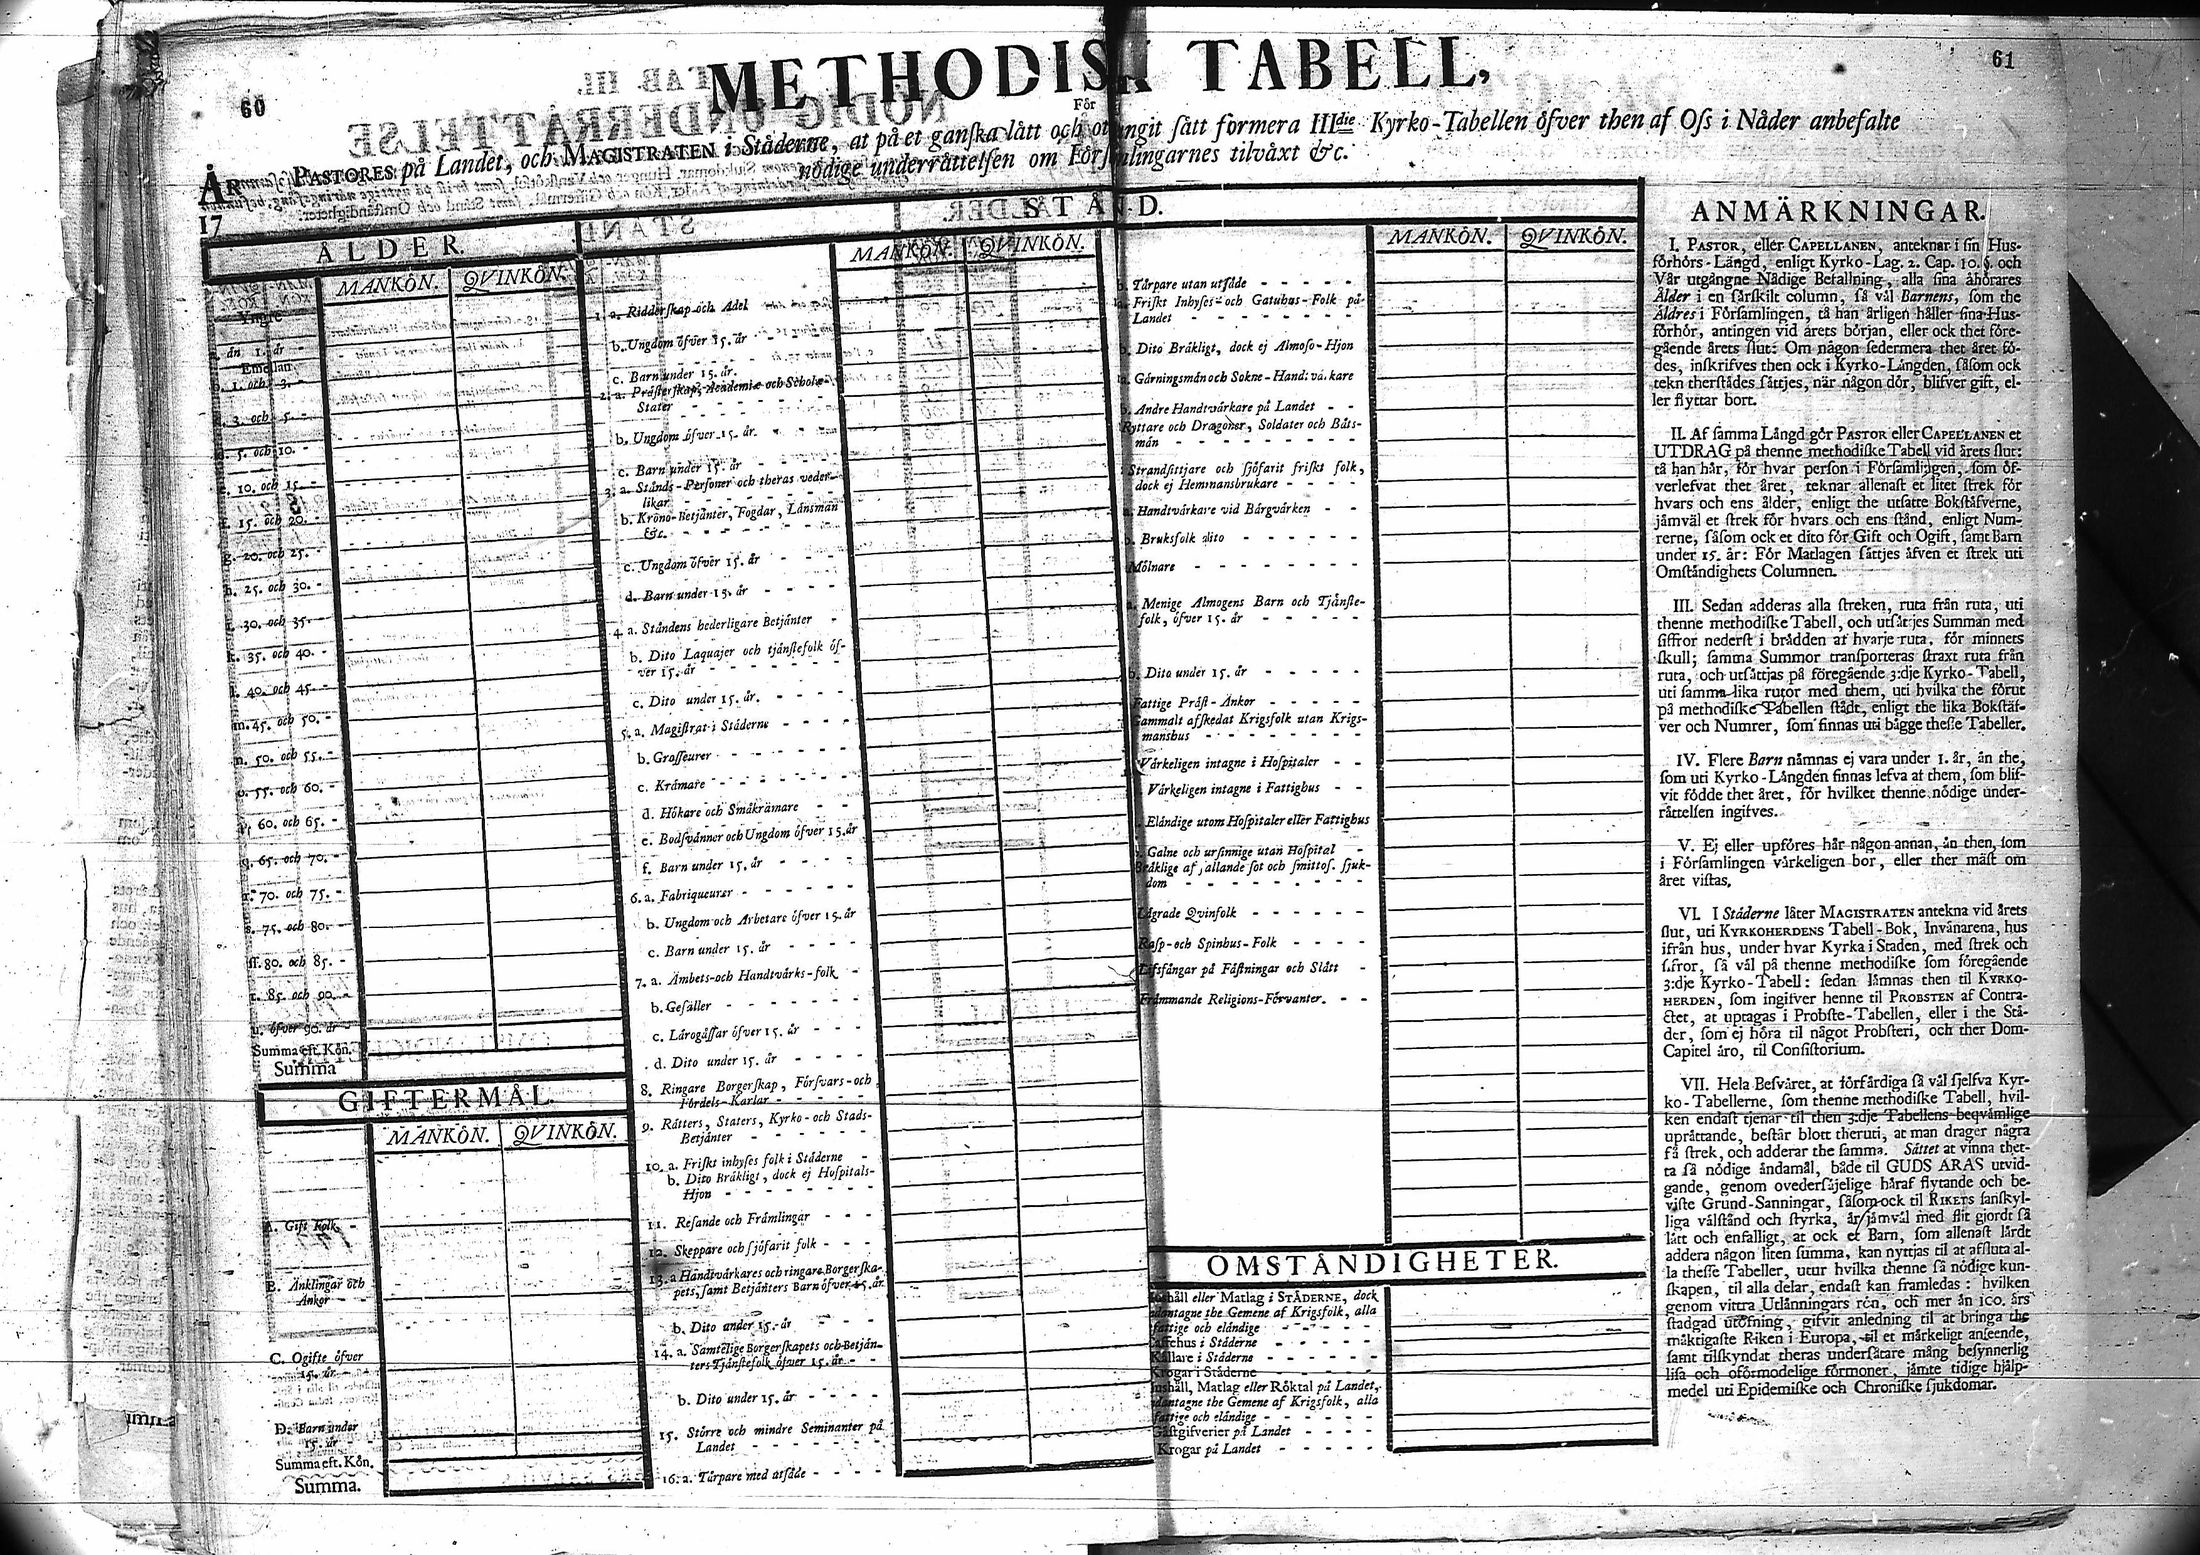 60
61
METHODISK TABELL,
För
PASTORES på Landet, och MAGISTRATEN i Ståderne, at på et ganska lått och otvungit sått formera IIIdie Kyrko-Tabellen öfver then af Oss i Nåder anbefalte
nödige underråttelsen om Församlingarnes tilvåxt &c.
År
17
ÅLDER.
MANKÖN. QVINKÖN.
Yngre
än 1. år
Emellan
b. 1. och 3.
3. och 5.
d. 5. och 10.
e. 10. och 15.
f. 15. och 20.
g. 20. och 25.
h. 25. och 30.
i. 30. och 35.
k. 35. och 40.
l. 40. och 45.
m. 45. och 50.
n. 50. och 55.
o. 55. och 60.
p. 60. och 65.
q. 65. och 70.
r. 70. och 75.
s. 75. och 80.
ſſ. 80. och 85.
t. 85. och 90.
u. öfver 90. år
Summa eft. Kön.
Summa
GIFTERMÅL.
MANKÖN. QVINKÖN.
A. Gift Folk
B. Änklingar och
Änkor
C. Ogifte öfver
15. år
D. Barn under
15. år
Summa eft. Kön.
Summa.
STÅND.
MANKÖN. QVINKÖN.
1. a. Ridderſkap och Adel
b. Ungdom öfver 15. år
c. Barn under 15. år.
2. a. Pråſterſkap, Academiæ och Scholæ-
Stater
b. Ungdom öfver 15. år.
c. Barn under 15. år
3. a. Stånds-Perſoner och theras veder-
likar
b. Krono-Betjånter, Fogdar, Lånsmån
&c.
c. Ungdom öfver 15. år
d. Barn under 15. år
4. a. Ståndens hederligare Betjånter
b. Dito Laquajer och tjånſtefolk öf-
ver 15. år
c. Dito under 15. år.
5. a. Magiſtrat i Ståderne
b. Groſſeurer
c. Kråmare
d. Hökare och Småkråmare
e. Bodſvånner och Ungdom öfver 15. år
f. Barn under 15. år
6. a. Fabriqueurer
b. Ungdom och Arbetare öfver 15. år
c. Barn under 15. år
7. a. Ämbets-och Handtvårks-folk
b. Geſåller
c. Lårogåſſar öfver 15. år
d. Dito under 15. år
8. Ringare Borgerſkap, Förſvars-och
Fördels-Karlar
9. Råtters, Staters, Kyrko-och Stads-
Betjånter
10. a. Friſkt inhyſes folk i Ståderne
b. Dito Bråkligt, dock ej Hoſpitals-
Hjon
11. Reſande och Fråmlingar
12. Skeppare och ſjöfarit folk
13. a Handtvårkares och ringare Borgerſka-
pets, ſamt Betjånters Barn öfver 15. år
b. Dito under 15. år
14. a. Samtelige Borgerſkapets och Betjån-
ters Tjånſtefolk öfver 15. år
b. Dito under 15. år
15. Större och mindre Seminanter på
Landet
16. a. Tårpare med utſåde
MANKÖN. QVINKÖN.
b. Tårpare utan utſåde
a. Friſkt Inhyſes-och Gatuhus-Folk på
Landet
b. Dito Bråkligt, dock ej Almoſo-Hjon
a. Gårningsmån och Sokne-Handtvårkare
b. Andre Handtvårkare på Landet
Ryttare och Dragoner, Soldater och Båts-
mån
Strandſittjare och ſjöfarit friſkt folk,
dock ej Hemmansbrukare
a. Handtvårkare vid Bårgvårken
b. Bruksfolk dito
Mölnare
a. Menige Almogens Barn och Tjånſte-
folk, öfver 15. år
b. Dito under 15. år
Fattige Pråſt-Änkor
Gammalt afſkedat Krigsfolk utan Krigs-
manshus
Vårkeligen intagne i Hoſpitaler
Vårkeligen intagne i Fattighus
Elåndige utom Hoſpitaler eller Fattighus
Galne och urſinnige utan Hoſpital
Bråklige af fallande ſot och ſmittoſ. ſjuk-
dom
Lågrade Qvinfolk
Raſp-och Spinhus-Folk
Lifsfångar på Fåſtningar och Slått
Fråmmande Religions-Förvanter.
OMSTÅNDIGHETER.
Hushåll eller Matlag i STÅDERNE, dock
undantagne the Gemene af Krigsfolk, alla
fattige och elåndige
Caffehus i Ståderne
Kållare i Ståderne
Krogar i Ståderne
Hushåll, Matlag eller Röktal på Landet,
undantagne the Gemene af Krigsfolk, alla
fattige och elåndige
Gåſtgifverier på Landet
Krogar på Landet
ANMÄRKNINGAR.
I. PASTOR, eller CAPELLANEN, anteknar i ſin Hus-
förhörs-Långd, enligt Kyrko-Lag. 2. Cap. 10. §. och
Vår utgångne Nådige Befallning, alla ſina åhörares
Ålder i en ſårſkilt column, ſå vål Barnens, ſom the
Äldres i Förſamlingen, tå han årligen håller ſina Hus-
förhör, antingen vid årets början, eller ock thet före-
gående årets ſlut: Om någon ſedermera thet året fö-
des, inſkrifves then ock i Kyrko-Långden, ſåſom ock
tekn therſtådes ſåttjes, når någon dör, blifver gift, el-
ler flyttar bort.
II. Af ſamma Långd gör PASTOR eller CAPELLANEN et
UTDRAG på thenne methodiſke Tabell vid årets ſlut:
tå han hår, för hvar perſon i Förſamlingen, ſom öf-
verlefvat thet året, teknar allenaſt et litet ſtrek för
hvars och ens ålder, enligt the utſatte Bokſtåfverne,
jåmvål et ſtrek för hvars och ens ſtånd, enligt Num-
rerne, ſåſom ock et dito för Gift och Ogift, ſamt Barn
under 15. år: För Matlagen ſåttjes åfven et ſtrek uti
Omſtåndighets Columnen.
III. Sedan adderas alla ſtreken, ruta från ruta, uti
thenne methodiſke Tabell, och utſåttjes Summan med
ſiffror nederſt i brådden af hvarje ruta, för minnets
ſkull; ſamma Summor tranſporteras ſtraxt ruta från
ruta, och utſåttjas på föregående 3:dje Kyrko-Tabell,
uti ſamma lika rutor med them, uti hvilka the förut
på methodiſke Tabellen ſtådt, enligt the lika Bokſtåf-
ver och Numrer, ſom finnas uti bågge theſſe Tabeller.
IV. Flere Barn nåmnas ej vara under 1. år, ån the,
ſom uti Kyrko-Långden finnas lefva af them, ſom blif-
vit födde thet året, för hvilket thenne nödige under-
råttelſen ingifves.
V. Ej eller upföres hår någon annan, ån then, ſom
i Förſamlingen vårkeligen bor, eller ther måſt om
året viſtas.
VI. I Ståderne låter MAGISTRATEN antekna vid årets
ſlut, uti KYRKOHERDENS Tabell-Bok, Invånarena, hus
ifrån hus, under hvar Kyrka i Staden, med ſtrek och
ſiffror, ſå vål på thenne methodiſke ſom föregående
3:dje Kyrko-Tabell: ſedan låmnas then til KYRKO-
HERDEN, ſom ingifver henne til PROBSTEN af Contra-
ctet, at uptagas i Probſte-Tabellen, eller i the Stå-
der, ſom ej höra til något Probſteri, och ther Dom-
Capitel åro, til Conſiſtorium.
VII. Hela Beſvåret, at förfårdiga ſå vål ſjelfva Kyr-
ko-Tabellerne, ſom thenne methodiſke Tabell, hvil-
ken endaſt tjenar til then 3:dje Tabellens beqvåmlige
upråttande, beſtår blott theruti, at man drager några
få ſtrek, och adderar the ſamma. Såttet at vinna thet-
ta ſå nödige åndamål, både til GUDS ÄRAS utvid-
gande, genom oveders\u00e5jelige håraf flytande och be-
viſte Grund-Sanningar, ſåſom ock til RIKETS ſanſkyl-
liga vålſtånd och ſtyrka, år jåmvål med flit gjordt ſå
lått och enfalligt, at ock et Barn, ſom allenaſt lårdt
addera någon liten ſumma, kan nyttjas til at afſluta al-
la theſſe Tabeller, utur hvilka thenne ſå nödige kun-
ſkapen, til alla delar, endaſt kan framledas: hvilken
genom vittra Utlånningars rön, och mer ån 100. års
ſtadgad utöfning, gifvit anledning til at bringa the
måktigaſte Riken i Europa, til et mårkeligt anſeende,
ſamt tilſkyndat theras underſåtare mång beſynnerlig
liſa och oförmodelige förmoner, jåmte tidige hjålp-
medel uti Epidemiſke och Chroniſke ſjukdomar.